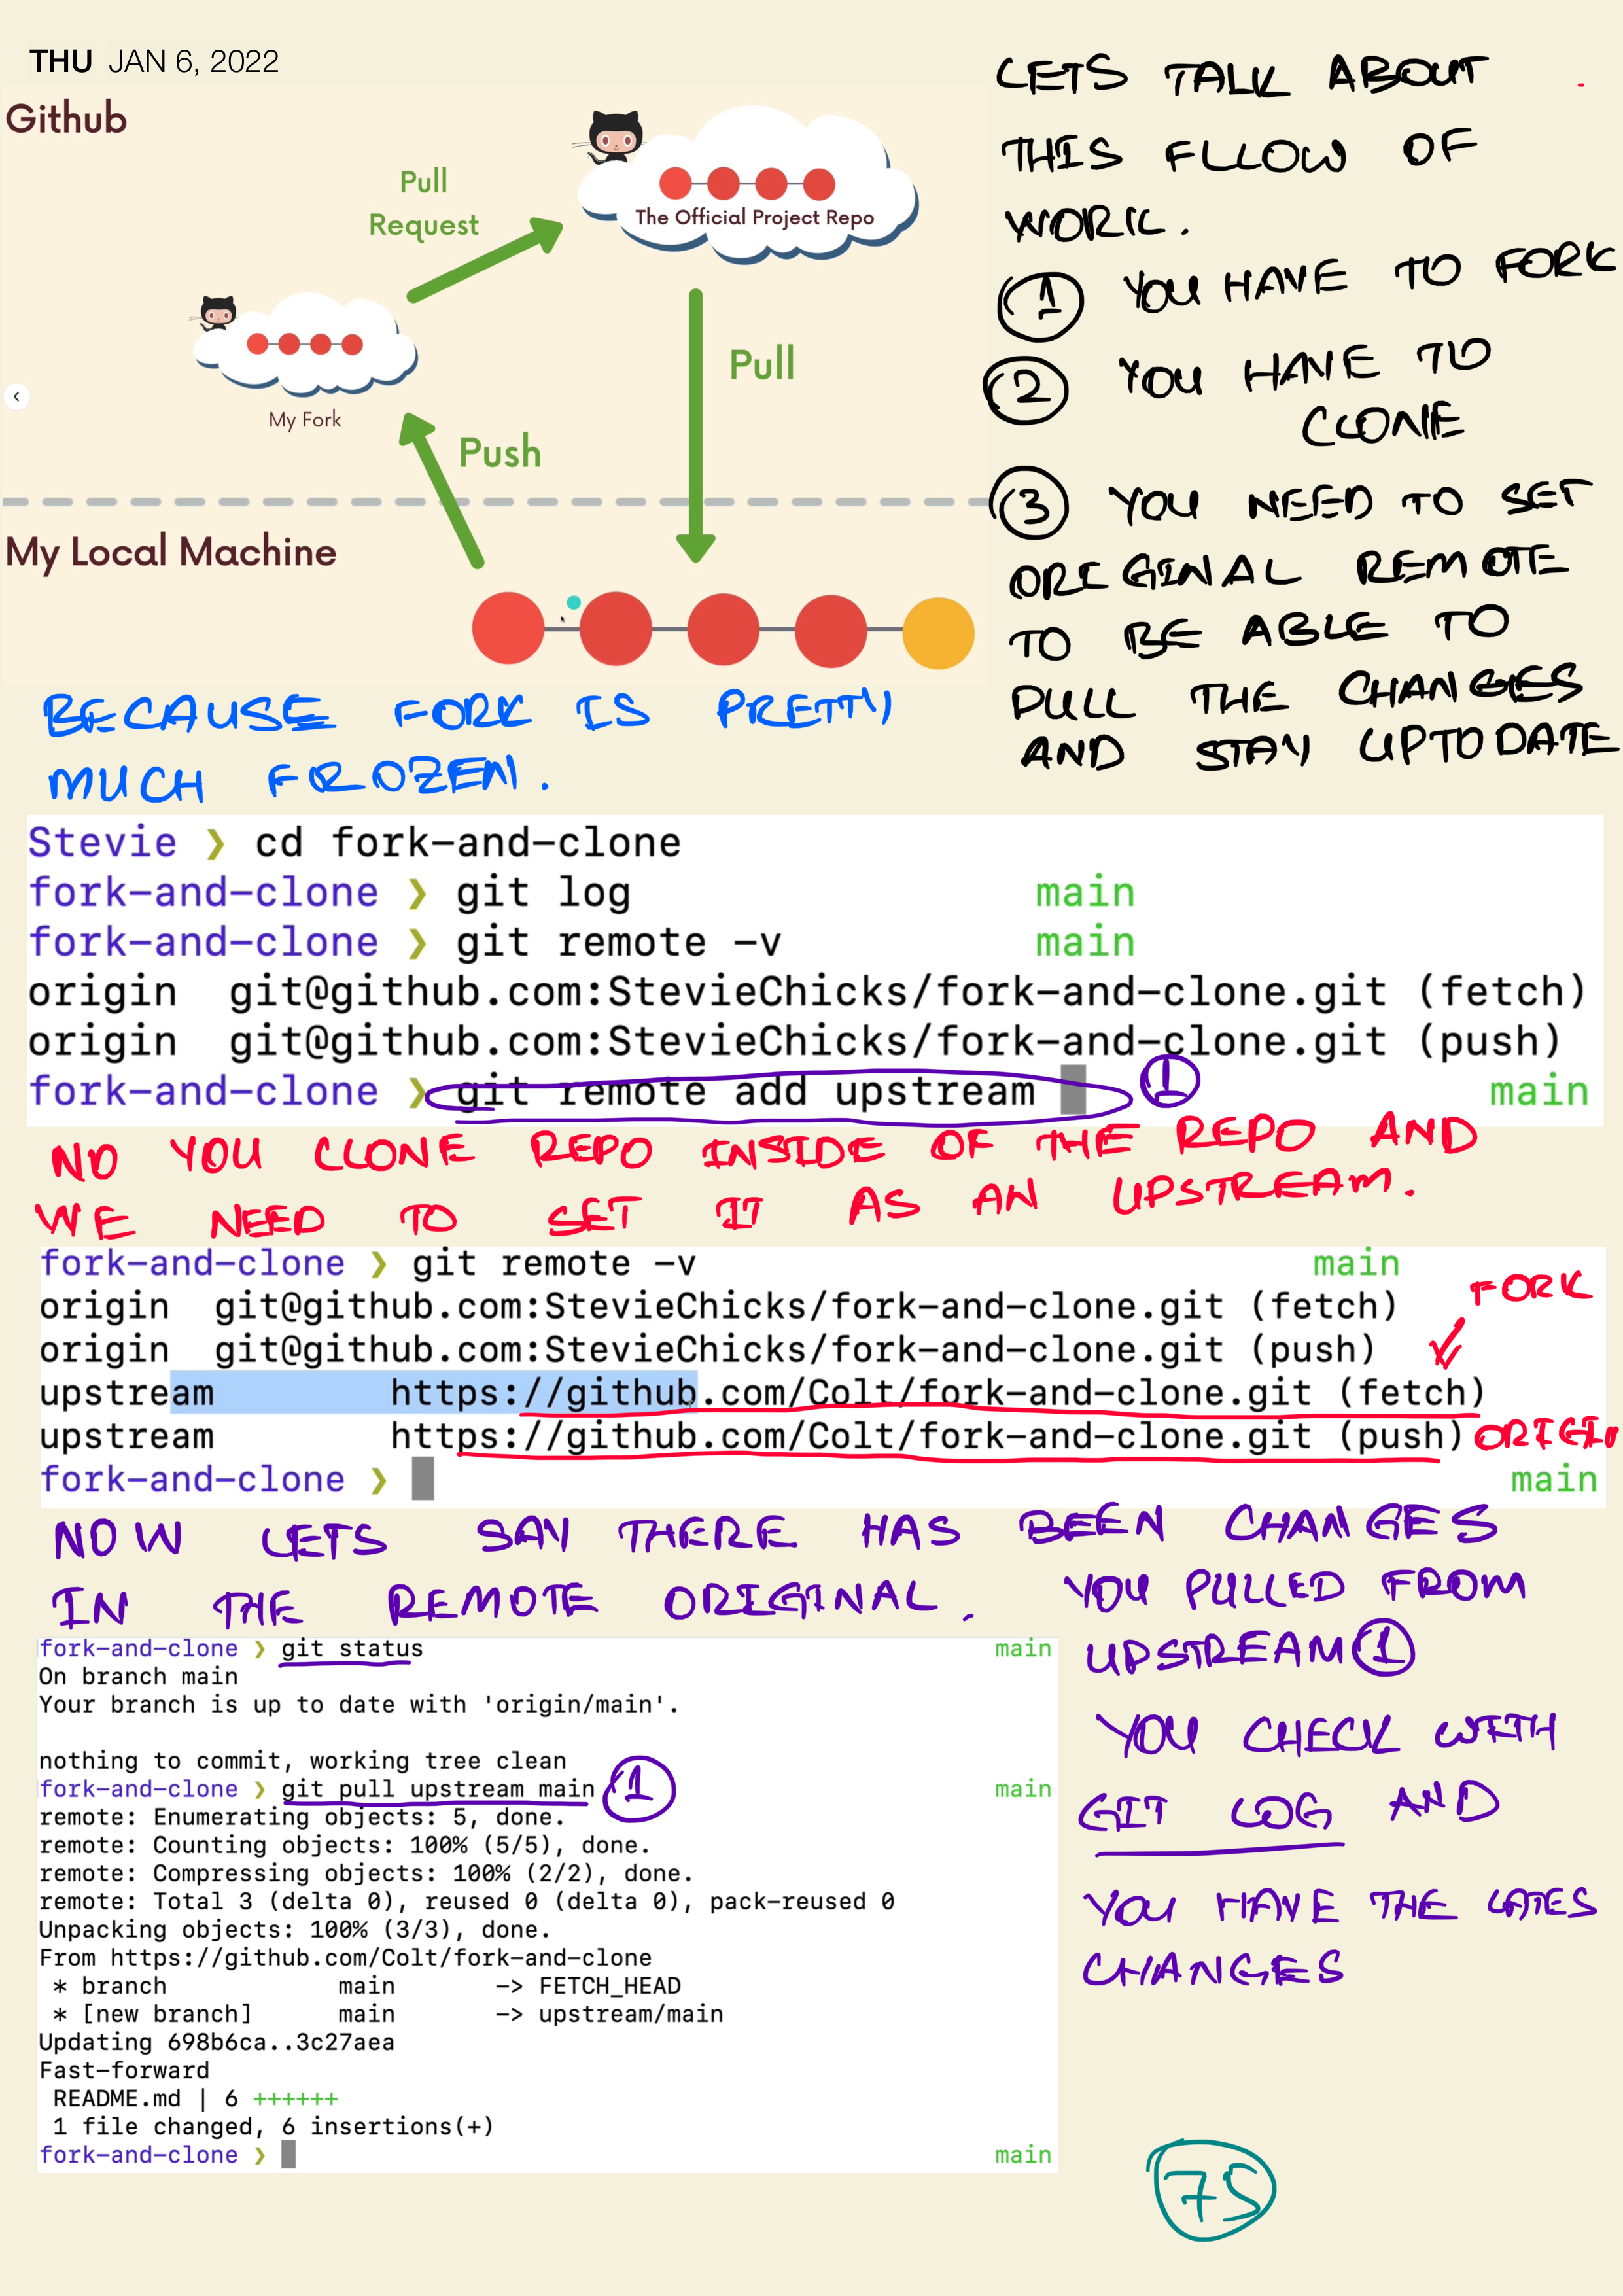 THU JAN 6, 2022
Github
Pull
Request
The Official Project Repo
My Fork
Pull
Push
My Local Machine
LETS TALK ABOUT
THIS FLLOW OF
WORK.
① YOU HAVE TO FORK
② YOU HAVE TO
CLONE
③ YOU NEED TO SET
ORIGINAL REMOTE
TO BE ABLE TO
PULL THE CHANGES
AND STAY UPTODATE
BECAUSE FORK IS PRETTY
MUCH FROZEN.
Stevie ❯ cd fork-and-clone
fork-and-clone ❯ git log main
fork-and-clone ❯ git remote -v main
origin git@github.com:StevieChicks/fork-and-clone.git (fetch)
origin git@github.com:StevieChicks/fork-and-clone.git (push)
fork-and-clone ❯ git remote add upstream ① main
NO YOU CLONE REPO INSIDE OF THE REPO AND
WE NEED TO SET IT AS AN UPSTREAM.
fork-and-clone ❯ git remote -v main
origin git@github.com:StevieChicks/fork-and-clone.git (fetch) FORK
origin git@github.com:StevieChicks/fork-and-clone.git (push)
upstream https://github.com/Colt/fork-and-clone.git (fetch)
upstream https://github.com/Colt/fork-and-clone.git (push) ORIGIN
fork-and-clone ❯ main
NOW LETS SAY THERE HAS BEEN CHANGES
IN THE REMOTE ORIGINAL. YOU PULLED FROM
UPSTREAM ①
YOU CHECK WITH
GIT LOG AND
YOU HAVE THE LATES
CHANGES
fork-and-clone ❯ git status main
On branch main
Your branch is up to date with 'origin/main'.
nothing to commit, working tree clean
fork-and-clone ❯ git pull upstream main ① main
remote: Enumerating objects: 5, done.
remote: Counting objects: 100% (5/5), done.
remote: Compressing objects: 100% (2/2), done.
remote: Total 3 (delta 0), reused 0 (delta 0), pack-reused 0
Unpacking objects: 100% (3/3), done.
From https://github.com/Colt/fork-and-clone
* branch main -> FETCH_HEAD
* [new branch] main -> upstream/main
Updating 698b6ca..3c27aea
Fast-forward
README.md | 6 ++++++
1 file changed, 6 insertions(+)
fork-and-clone ❯ main
75